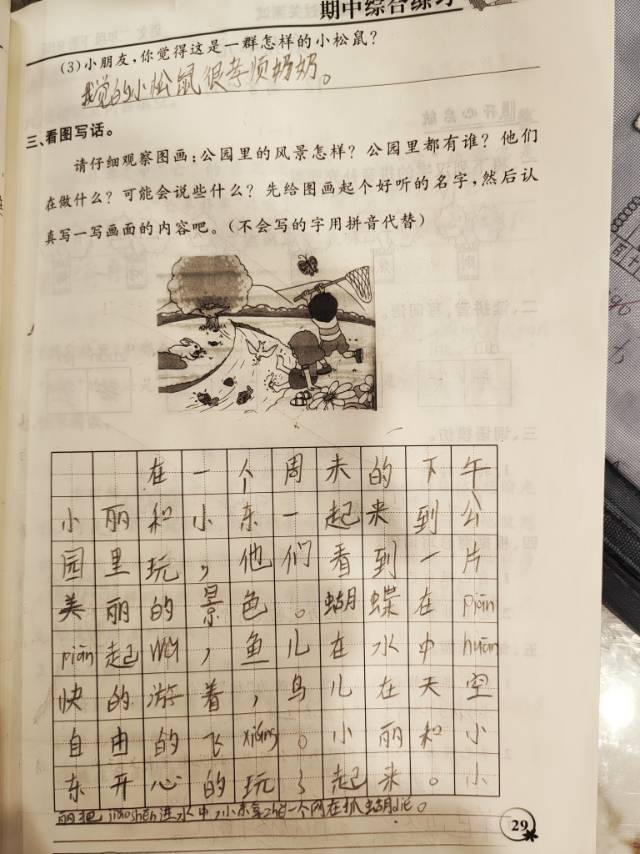 期中综合练习
(3)小朋友,你觉得这是一群怎样的小松鼠?
我觉的小松鼠很孝顺奶奶。
三、看图写话。
请仔细观察图画:公园里的风景怎样?公园里都有谁?他们
在做什么?可能会说些什么?先给图画起个好听的名字,然后认
真写一写画面的内容吧。(不会写的字用拼音代替)
在一个周末的下午
小丽和小东一起来到公
园里玩,他们看到一片
美丽的景色。蝴蝶在piān
piān起wǔ,鱼儿在水中huān
快的游着,鸟儿在天空
自由的飞xiáng。小丽和小
东开心的玩了起来。小
丽把 进水中,小东拿 一个网在抓蝴蝶。
29